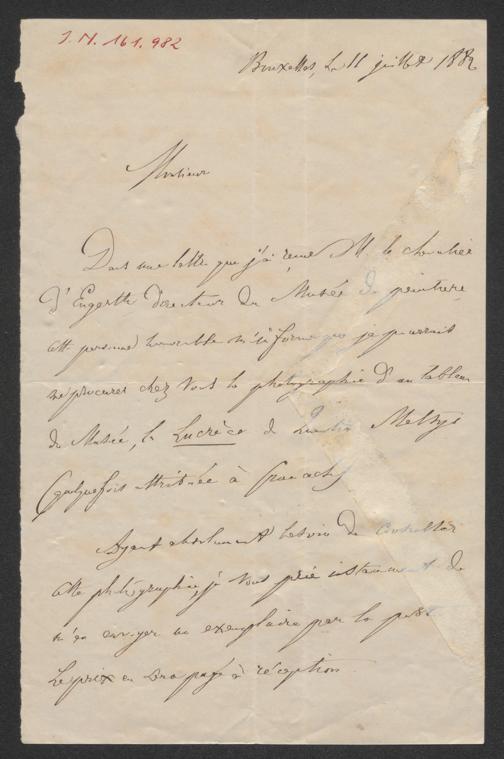 J. N. 161.982
Bruxelles, le 11 juillet 1882
Monsieur
Dans une lettre que j'ai reçue M le chevalier
d'Engerth directeur du Musée de peinture,
cette personne honorable m'informe que je pourrais
me procurer chez vous la photographie d'un tableau
du Musée, la Lucrèce de Quentin Metsys
(quelquefois attribuée à Cranach)
Ayant absolument besoin de consulter
cette photographie, je vous prie instamment de
m'en envoyer un exemplaire par la poste
Le prix en sera payé à réception